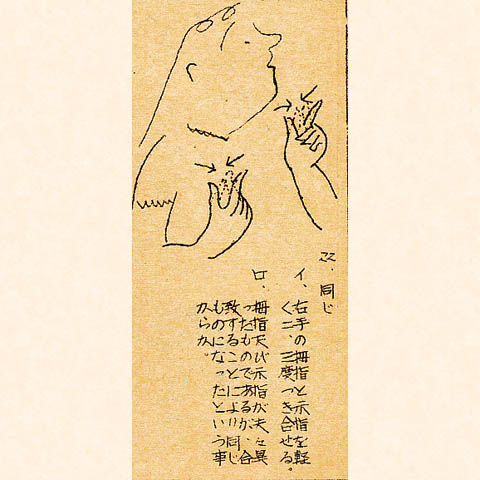 22、同じ
イ、右手の拇指と示指を軽
く二、三度つき合せる。
ロ、拇指及び示指が夫々異
ったものであるが、合
致することにより同じ
ものになったという事
からか。